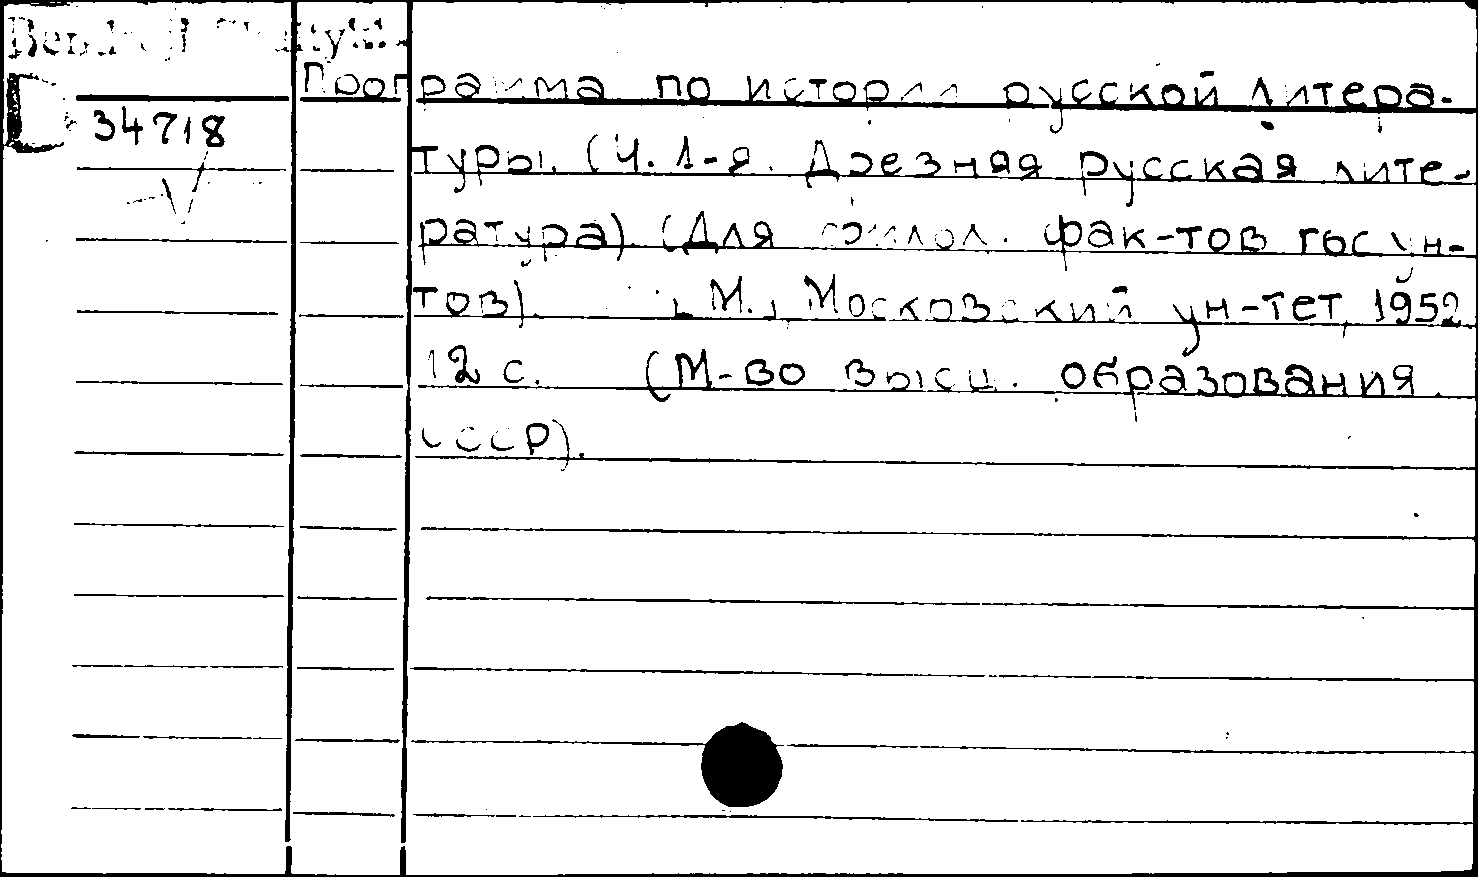 Программа по истории русской литера-
34718
туры. (Ч. 1-я. Древняя русская лите-
ратура). (Для филол. фак-тов гос ун-
тов). М., Московский ун-тет, 1952
12 с. (М-во высш. образования
СССР).